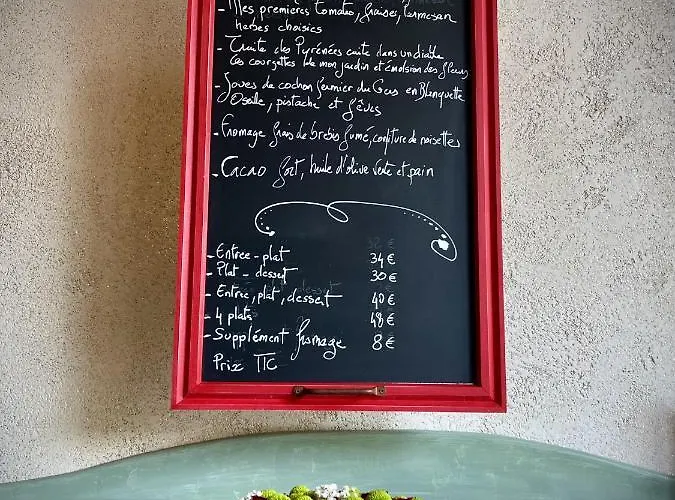 - Mes premières tomates, fraises, Parmesan
herbes choisies
- Truite des Pyrénées cuite dans un diable
les courgettes de mon jardin et émulsion des fleurs
- Joues de cochon fermier du Gers en Blanquette
Oseille, pistache et fèves
- Fromage frais de brebis fumé, confiture de noisettes
- Cacao fort, huile d'olive verte et pain
32 €
- Entrée - plat 34 €
- Plat - dessert 30 €
- Entrée, plat, dessert 40 €
- 4 plats 48 €
- Supplément fromage 8 €
Prix TTC